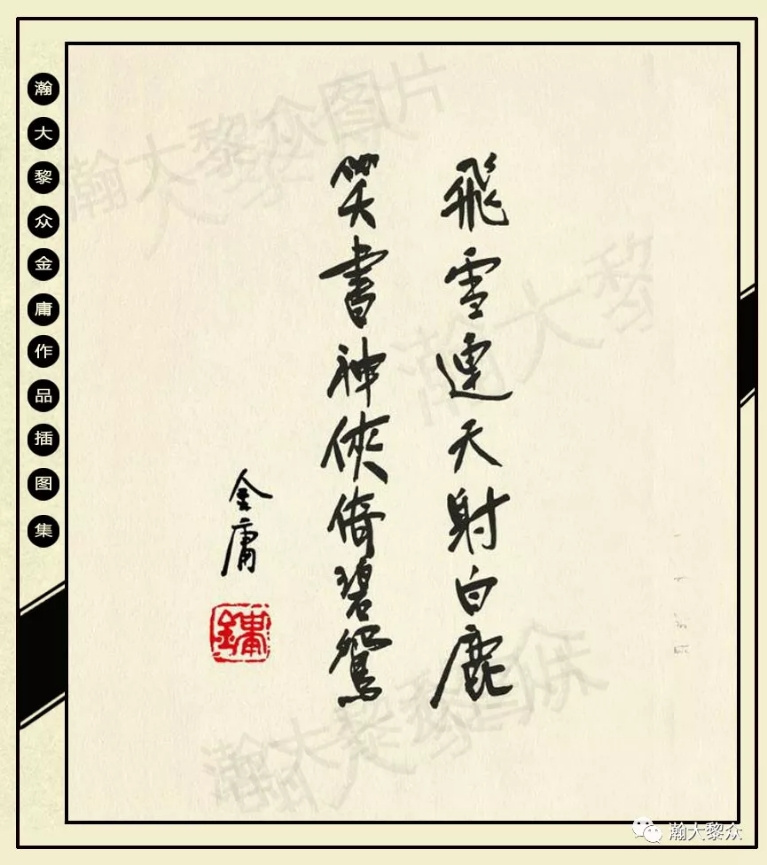 飛雪連天射白鹿
笑書神俠倚碧鴛
金庸
瀚大黎众金庸作品插图集
瀚大黎众图片
瀚大黎
瀚大黎众图片
瀚大黎众